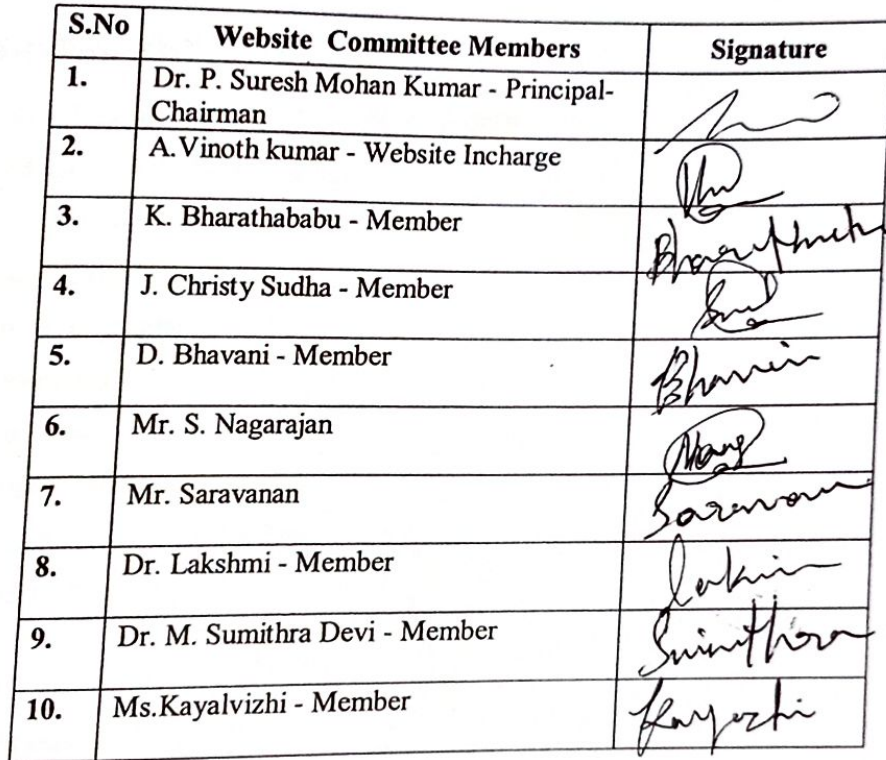 S.No Website Committee Members Signature
1. Dr. P. Suresh Mohan Kumar - Principal-
Chairman
2. A.Vinoth kumar - Website Incharge
3. K. Bharathababu - Member
4. J. Christy Sudha - Member
5. D. Bhavani - Member
6. Mr. S. Nagarajan
7. Mr. Saravanan
8. Dr. Lakshmi - Member
9. Dr. M. Sumithra Devi - Member
10. Ms.Kayalvizhi - Member